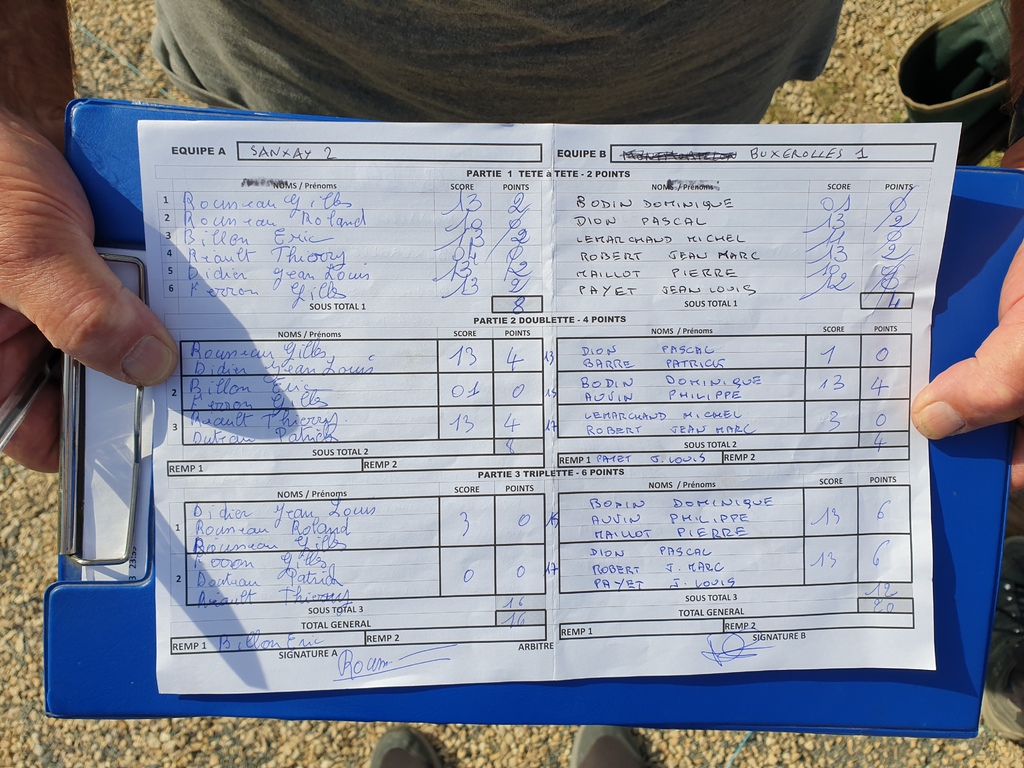 EQUIPE A SANXAY 2
EQUIPE B BUXEROLLES 1
PARTIE 1 TETE à TETE - 2 POINTS
NOMS / Prénoms SCORE POINTS
1 Rousseau Gilles 13 2
2 Rousseau Roland
3 Billon Eric 13 2
4 Réault Thierry 0
5 Didier Jean Louis 13 2
6 Perron Gilles 13 2
SOUS TOTAL 1 8
NOMS / Prénoms SCORE POINTS
BODIN DOMINIQUE 01 0
DION PASCAL 13 2
LEMARCHAND MICHEL 0
ROBERT JEAN MARC 13 2
MAILLOT PIERRE
PAYET JEAN LOUIS 12
SOUS TOTAL 1 4
PARTIE 2 DOUBLETTE - 4 POINTS
NOMS / Prénoms SCORE POINTS
Rousseau Gilles 13 4
Didier Jean Louis
2 Billon Eric 01 0
Perron Gilles
3 Réault Thierry 13 4
Duteau Patrick
SOUS TOTAL 2 8
REMP 1 REMP 2
NOMS / Prénoms SCORE POINTS
DION PASCAL 1 0
BARRE PATRICK
BODIN DOMINIQUE 13 4
AUVIN PHILIPPE
LEMARCHAND MICHEL 3 0
ROBERT JEAN MARC
SOUS TOTAL 2 4
REMP 1 PAYET J. LOUIS REMP 2
PARTIE 3 TRIPLETTE - 6 POINTS
NOMS / Prénoms SCORE POINTS
Didier Jean Louis
1 Rousseau Roland 3 0
Rousseau Gilles
Perron Gilles
2 Douteau Patrick 0 0
Réault Thierry
SOUS TOTAL 3 16
TOTAL GENERAL 16
REMP 1 Billon Eric REMP 2
SIGNATURE A
ARBITRE
NOMS / Prénoms SCORE POINTS
BODIN DOMINIQUE
AUVIN PHILIPPE 13 6
MAILLOT PIERRE
DION PASCAL
ROBERT J. MARC 13 6
PAYET J. LOUIS
SOUS TOTAL 3 12
TOTAL GENERAL 20
REMP 1 REMP 2
SIGNATURE B